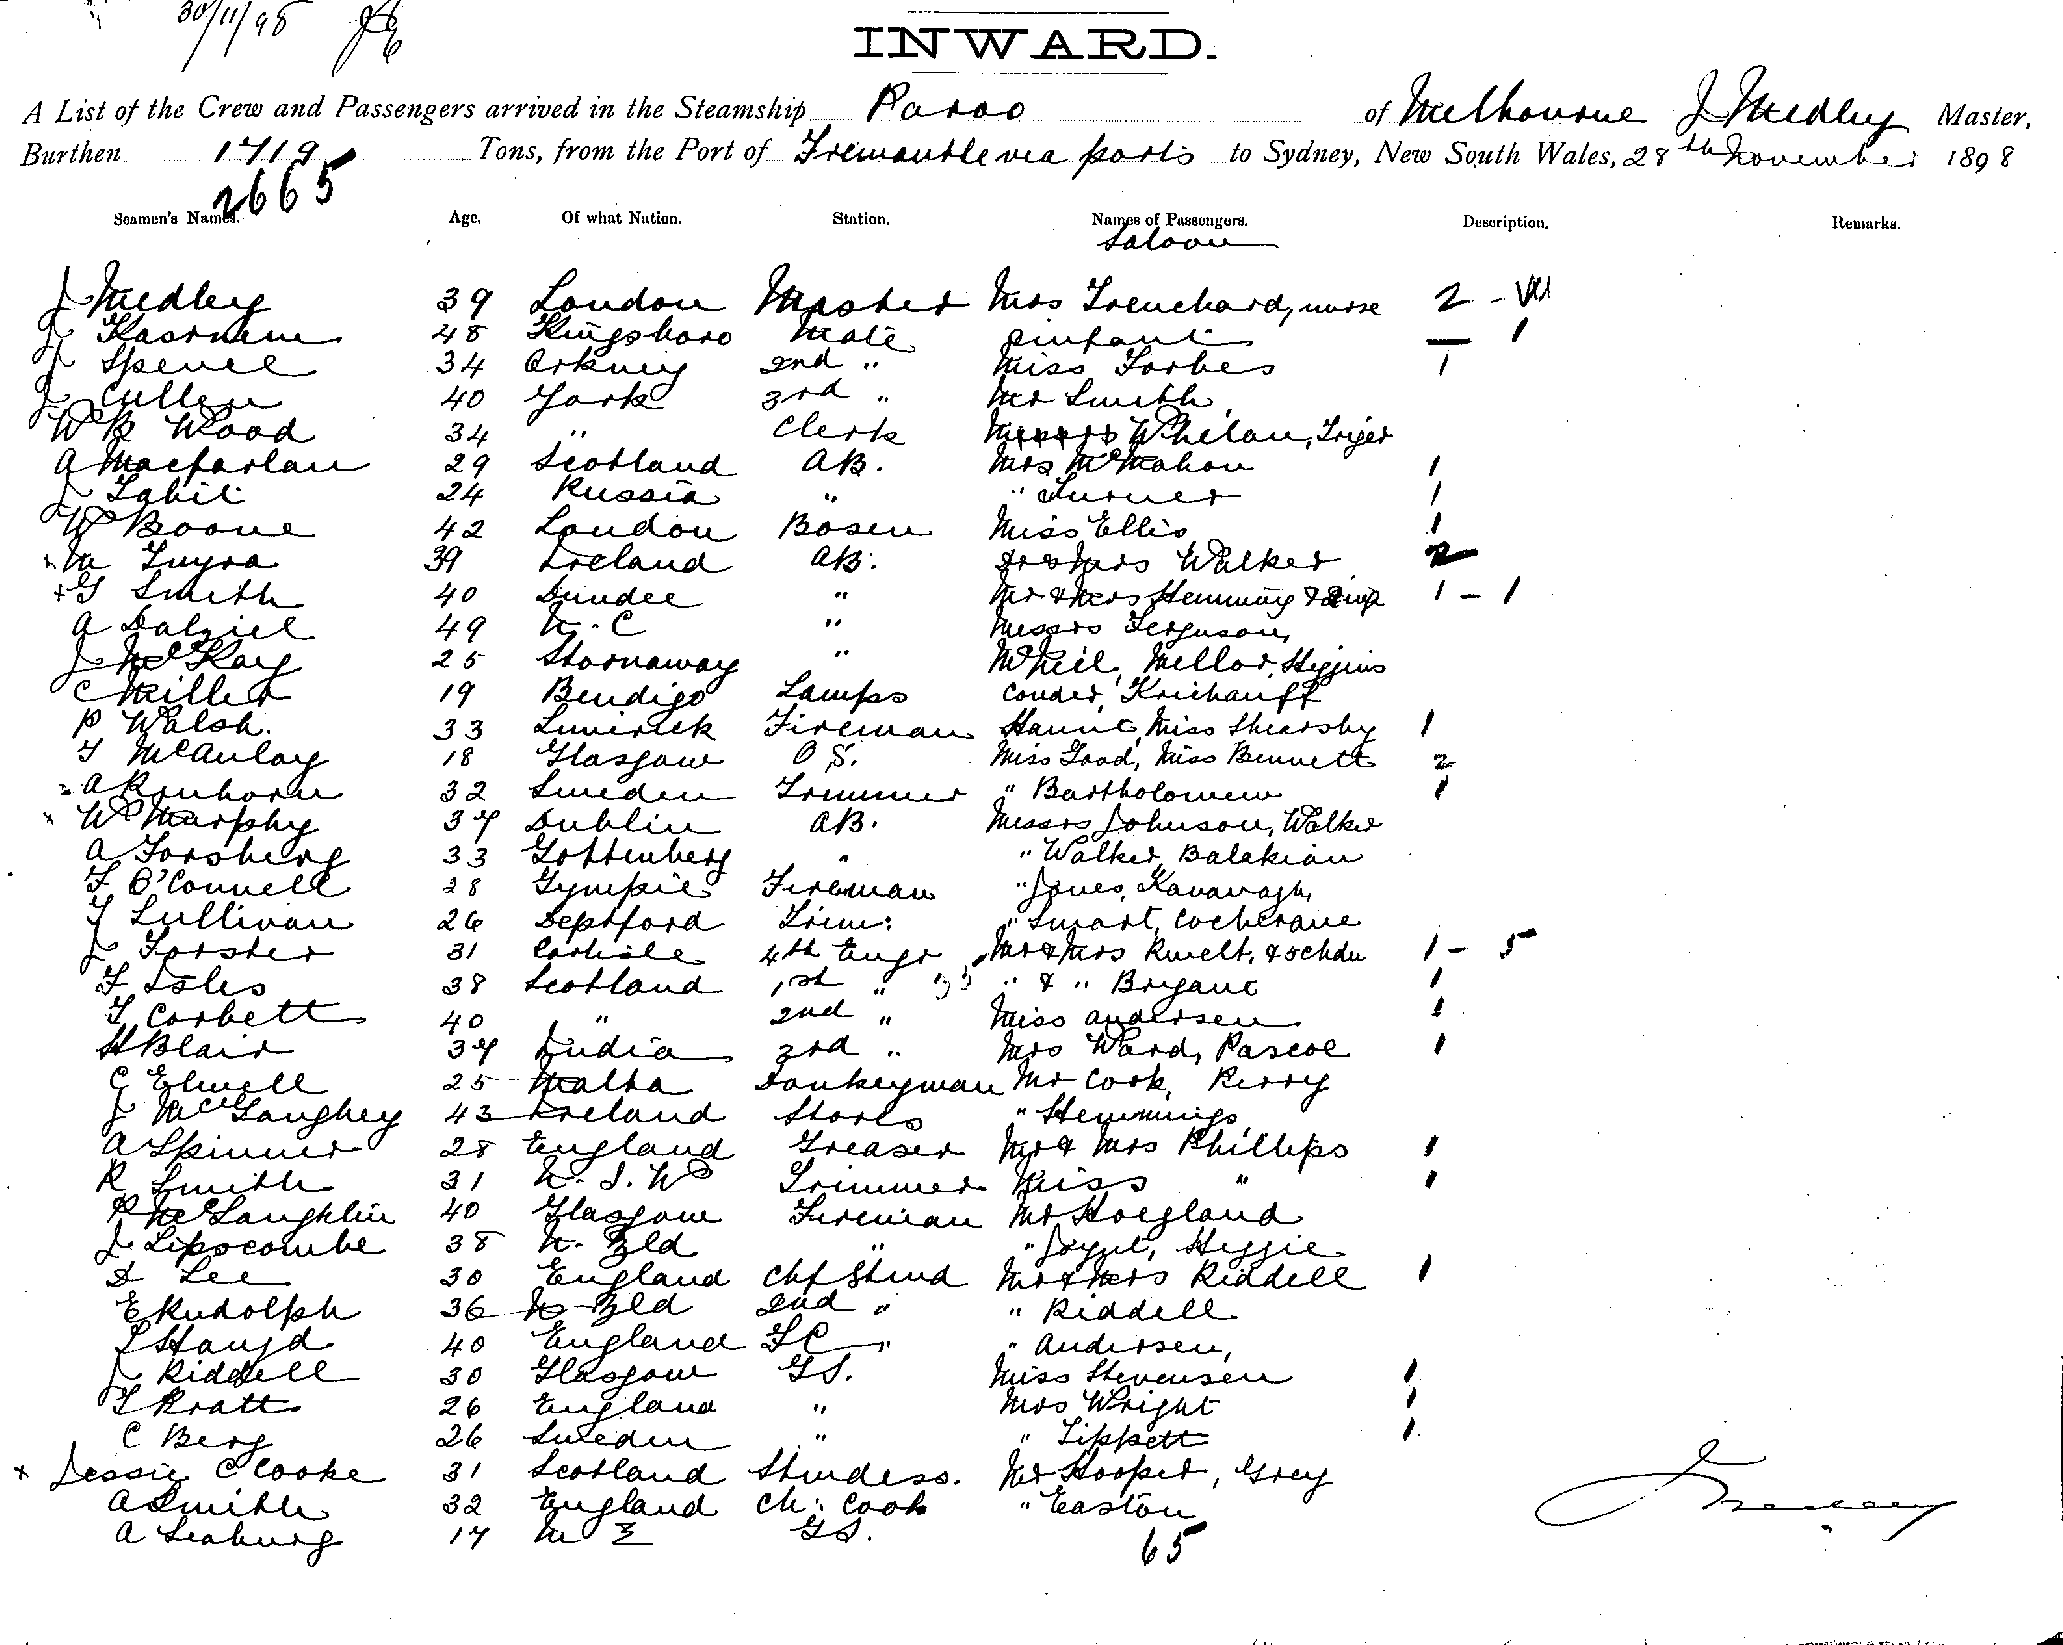 30/11/98
INWARD.
A List of the Crew and Passengers arrived in the Steamship Paroo of Melbourne J Medley Master,
Burthen 1719 Tons, from the Port of Fremantle via ports to Sydney, New South Wales, 28th November 1898
2665
Seamen's Names. Age. Of what Nation. Station. Names of Passengers. Description. Remarks.
Saloon
J Medley 39 London Master Mrs Trenchard, nurse 2 -
J 48 Kingsboro Mate infant — 1
J Spence 34 Orkney 2nd " Miss Forbes 1
J Cullen 40 York 3rd " Mr Smith,
W R Wood 34 " Clerk Messrs Whelan, Triger
A Macfarlan 29 Scotland AB. Mrs McMahon 1
J 24 Russia " " Turner 1
W Boone 42 London Bosen Miss Ellis 1
x M 39 Ireland AB. Walker 2
x G Smith 40 Dundee " Mr & Mrs Hemming & 1 - 1
A Dalziel 49 N. C " Messrs Ferguson,
J McKay 25 Stornaway " McNeil, Mellor, Higgins
C Miller 19 Bendigo Lamps Conder, Krichauff
P Walsh. 33 Limerick Fireman Miss Shearsby 1
F McAulay 18 Glasgow O S. Miss Good, Miss Bennett 2
A 32 Sweden Trimmer " Bartholomew 1
x W Murphy 37 Dublin AB. Messrs Johnson, Walker
A Forsberg 33 Gottenberg " " Walker, Balakian
F O'Connell 28 Gympie Fireman " Jones, Kavanagh,
F Sullivan 26 Deptford Trim: " Smart, Cochrane
J Forster 31 Carlisle 4th Engr Mr & Mrs & 5 chdn 1 - 5
F Isles 38 Scotland 1st " " & " Bryant 1
T Corbett 40 " 2nd " Miss Andersen 1
H Blair 37 India 3rd " Mrs Ward, Pascoe 1
G Elwell 25 Malta Donkeyman Mr Cook, Perry
J McGaughey 43 Ireland Stores " Hemmings,
A Skinner 28 England Greaser Mr & Mrs Phillips 1
R Smith 31 N. S. W Trimmer Miss " 1
P McLaughlin 40 Glasgow Fireman Mr Hoegland
J Lipscombe 38 N. Zld " " Joyne, Heggie
D Lee 30 England Chf Stwd Mr & Mrs Riddell 1
E Rudolph 36 N Zld 2nd " " Riddell
40 England " " Andersen,
J Riddell 30 Glasgow GS. Miss Stevensen 1
T Pratt 26 England " Mrs Wright 1
C Berg 26 Sweden " " Tippett 1
x Jessie C Cooke 31 Scotland Stwdess. Mr Hooper, Grey
A Smith 32 England Ch: Cook " Easton
A Seaburg 17 GS.
65